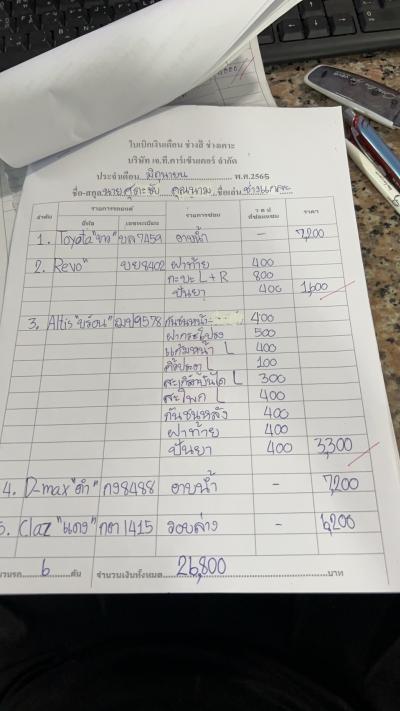 ใบเบิกเงินเดือน ช่างสี ช่างเคาะ
บริษัท เจ.ที.คาร์เซ็นเตอร์ จำกัด
ประจำเดือน มิถุนายน พ.ศ.2565
ชื่อ-สกุล นาย คุณนาม ชื่อเล่น
ลำดับ รายการรถยนต์ รายการซ่อม ราคา
ยี่ห้อ เลขทะเบียน
1. Toyota "เทา" 7459 อาบน้ำ - 7,200
2. Revo" 8402 ฝาท้าย 400
กะบะ L+R 800
ปั่นยา 400 1,600
3. Altis "บร้อน" 9578 กันชนหน้า 400
ฝากระโปรง 500
แก้มหน้า L 400
คิ้วประตู L 100
สะเกิ๊ตบันได L 300
สะโพก L 400
กันชนหลัง 400
ฝาท้าย 400
ปั่นยา 400 3,300
4. D-max "ดำ" กง8488 อาบน้ำ - 7,200
5. Claz "แดง" กตา1415 รอบล่าง - 6,200
6 คัน จำนวนเงินทั้งหมด 26,800 บาท